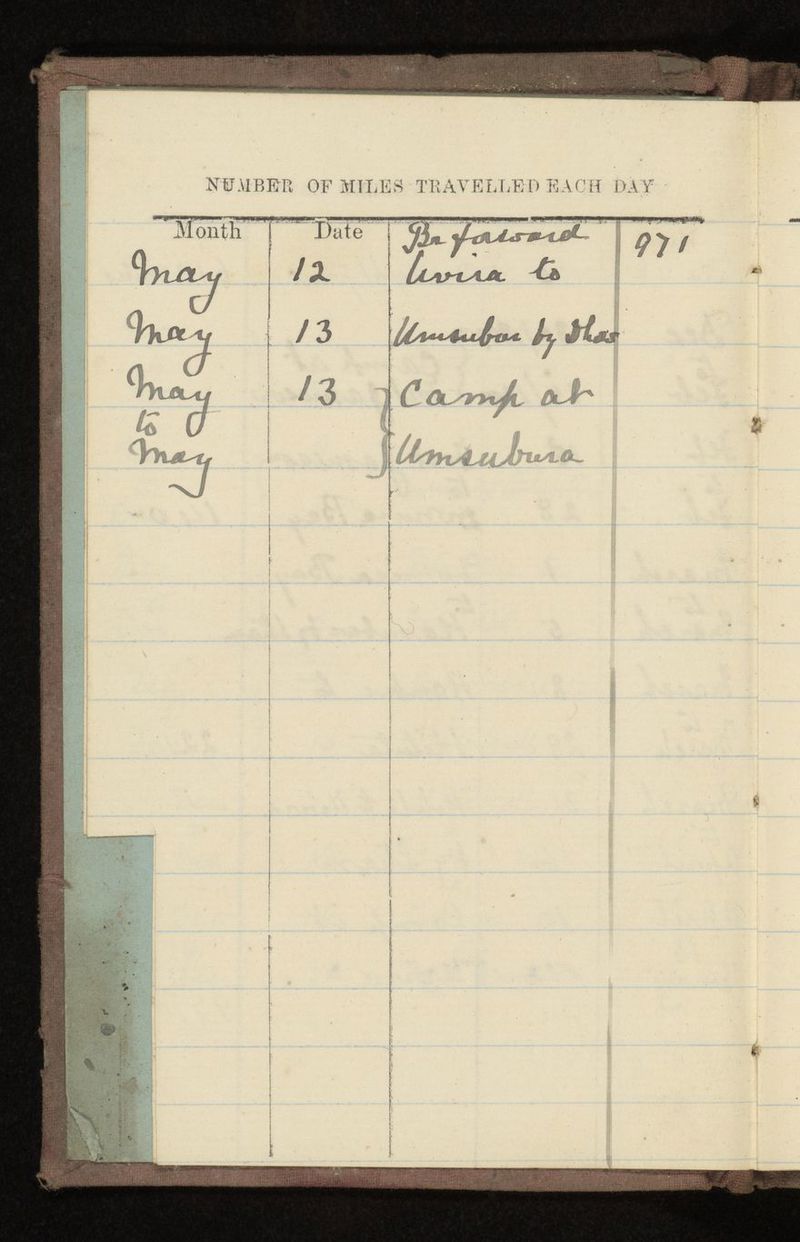 NUMBER OF MILES TRAVELLED EACH DAY
Month Date Br forward 971
May 12 Uvira to
May 13 Umsubar by Dhow
May 13 Camp at
to
May Umsubura